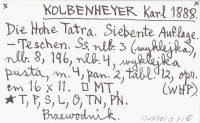 KOLBENHEYER Karl 1888.
Die Hohe Tatra. Siebente Auflage.
– Teschen. Ss. nlb. 3 (wyklejka),
nlb. 8, 196, nlb. 4, wyklejka
pusta, m. 4, pan. 2, tabl. 12, opr.
cm 16 x 11. □ MT, (WHP)
★ T, P, S, L, O, TN, PN.
Przewodnik.